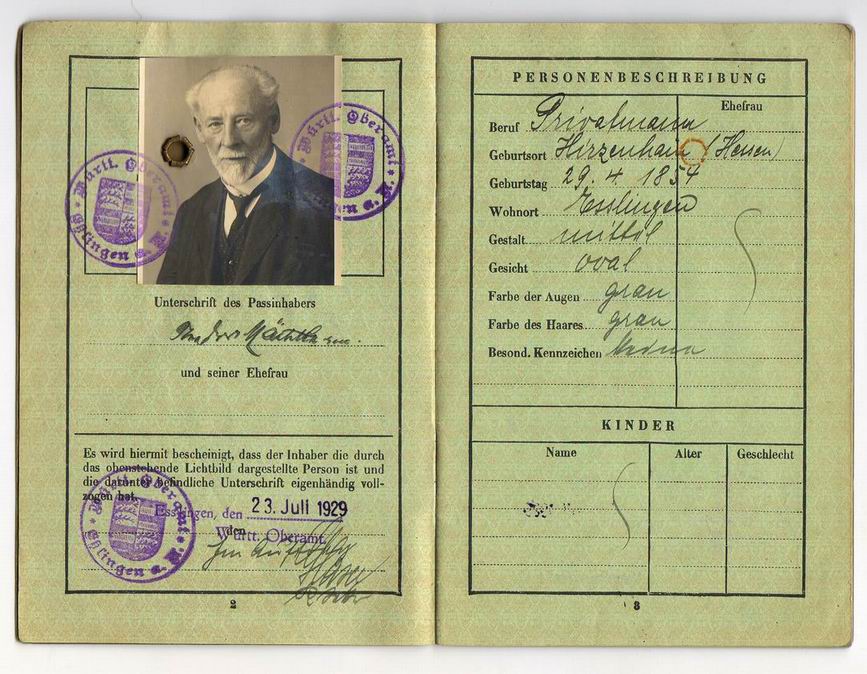 Württ. Oberamt
Eßlingen a. N.
Württ. Oberamt
Eßlingen a. N.
Unterschrift des Passinhabers
Theodor
und seiner Ehefrau
Es wird hiermit bescheinigt, dass der Inhaber die durch
das obenstehende Lichtbild dargestellte Person ist und
die darunter befindliche Unterschrift eigenhändig voll-
zogen hat.
Württ. Oberamt
Eßlingen a. N.
Esslingen, den 23. Juli 1929
den
Württ. Oberamt.
Im Auftrag
2
PERSONENBESCHREIBUNG
Ehefrau
Beruf Privatmann
Geburtsort Hirzenhain (Hessen)
Geburtstag 29. 4. 1854
Wohnort Esslingen
Gestalt mittel
Gesicht oval
Farbe der Augen grau
Farbe des Haares grau
Besond. Kennzeichen keine
KINDER
Name Alter Geschlecht
3